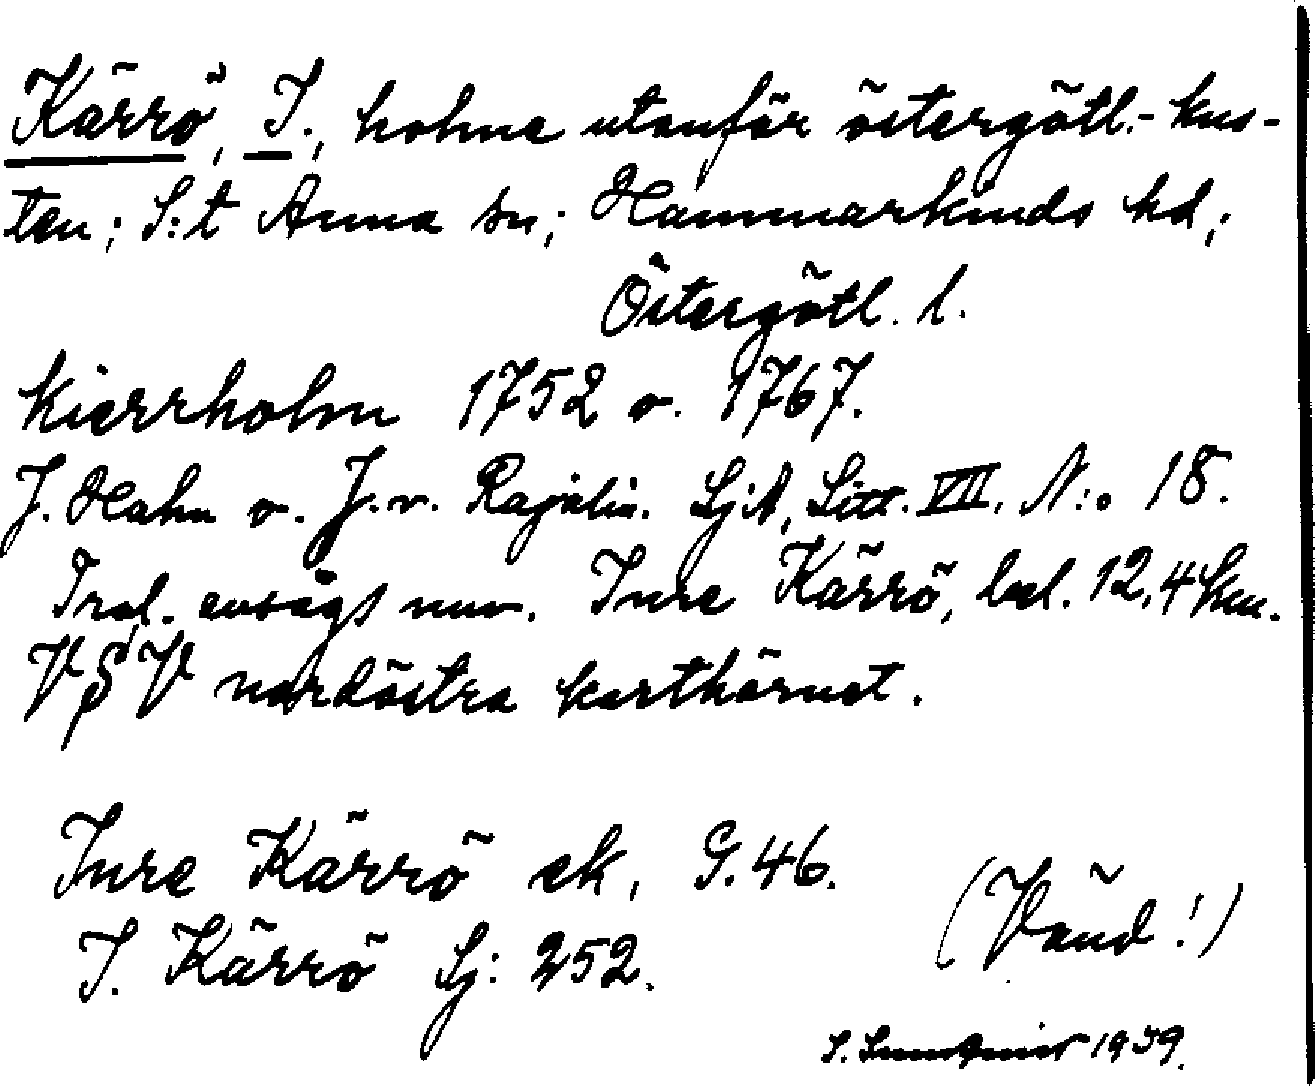 Kärrö, I., holme utanför östergötl.-kus-
ten; S:t Anna sn; Hammarkinds hd;
Östergötl. l.
Kierrholm 1752 o. 1767.
J. Hahn o. J. v. Rajalin. SjA, Litt. VIII. N:o 18.
Trol. avsågs nuv. Inre Kärrö, bel. 12,4 km.
VSV nordöstra karthörnet.
Inre Kärrö ek. G. 46.
I. Kärrö Sj: 252.
(Vänd!)
S. 1959.